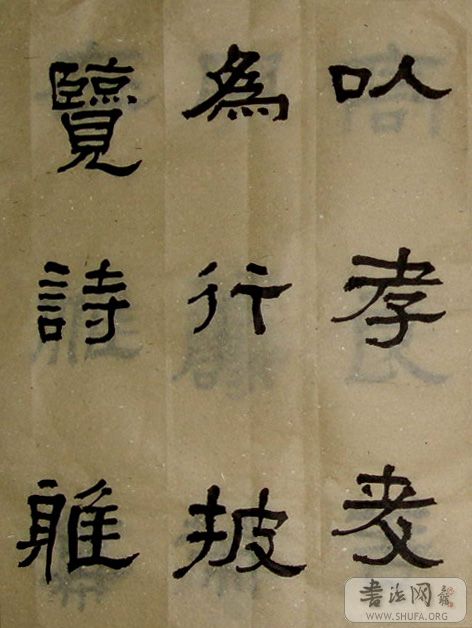 以孝友
為行披
覽詩雅
書法网
WWW.SHUFA.ORG